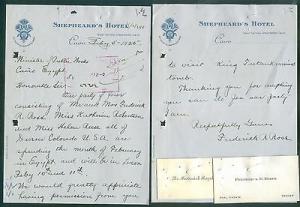 SHEPHEARD'S HOTEL
Cairo Feby 5 - 1925
Minister of Public Works
Cairo Egypt
Honorable Sir
Our party of four
consisting of Mr and Mrs Frederick
R. Ross, Miss Kathrine Robertson
and Miss Helen Ross, all of
Denver Colorado U.S.A. are
spending the month of February
in Egypt and will be in Luxor
Feby 10th and 11th.
We would greatly appreciate
having permission from you
SHEPHEARD'S HOTEL
Cairo
to visit King Tutankhamens
tomb.
Thanking you for anything
you can do for our party
I am.
Respectfully Yours
Frederick R. Ross
Frederick R. Ross